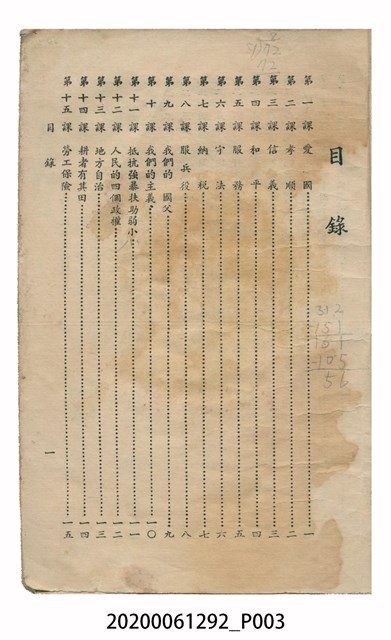 目錄
第一課 愛國 一
第二課 孝順 二
第三課 信義 三
第四課 和平 四
第五課 服務 五
第六課 守法 六
第七課 納稅 七
第八課 服兵役 八
第九課 我們的 國父 九
第十課 我們的主義 一〇
第十一課 抵抗強暴扶助弱小 一一
第十二課 人民的四個政權 一二
第十三課 地方自治 一三
第十四課 耕者有其田 一四
第十五課 勞工保險 一五
目錄 一
312
151
161
105
56
20200061292_P003